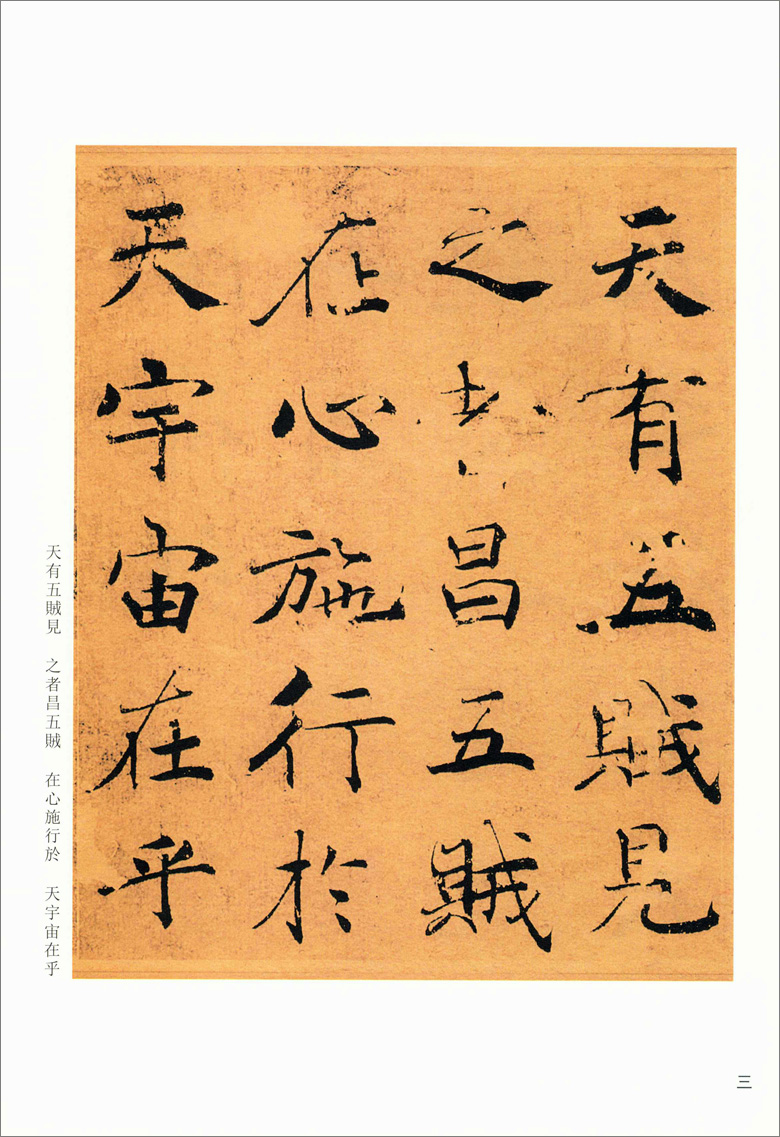 天有五賊見
之者昌五賊
在心施行於
天宇宙在乎
天有五賊見　之者昌五賊　在心施行於　天宇宙在乎
三